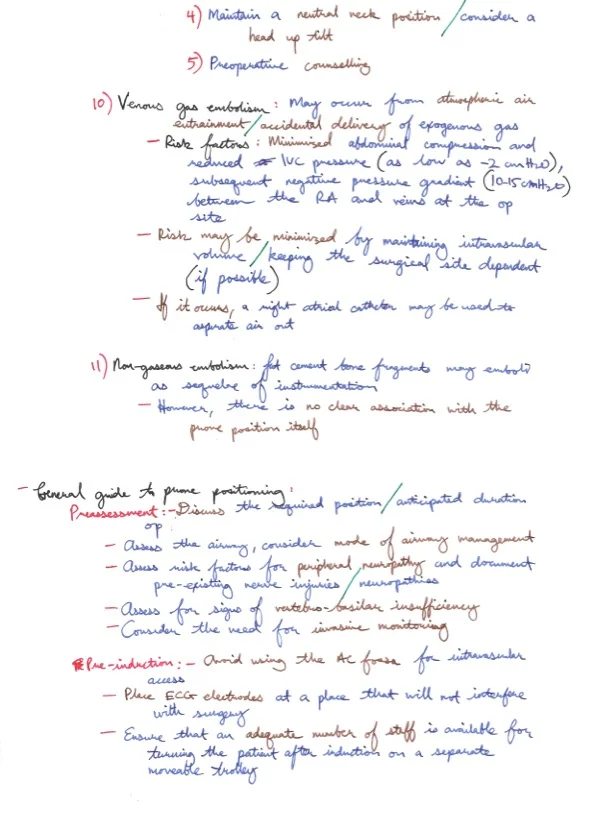 4) Maintain a neutral neck position / consider a
head up tilt
5) Preoperative counselling
10) Venous gas embolism: May occur from atmospheric air
entrainment / accidental delivery of exogenous gas
- Risk factors: Minimized abdominal compression and
reduced IVC pressure (as low as -2 cmH2O),
subsequent negative pressure gradient (10-15cmH2O)
between the RA and veins at the op
site
- Risk may be minimized by maintaining intravascular
volume / keeping the surgical site dependent
(if possible)
- If it occurs, a right atrial catheter may be used to
aspirate air out
11) Non-gaseous embolism: fat cement bone fragments may emboli
as sequelae of instrumentation
- However, there is no clear association with the
prone position itself
- General guide to prone positioning:
Preassessment: - Discuss the required position / anticipated duration
op
- Assess the airway, consider mode of airway management
- Assess risk factors for peripheral neuropathy and document
pre-existing nerve injuries / neuropathies
- Assess for signs of vertebro-basilar insufficiency
- Consider the need for invasive monitoring
Pre-induction: - Avoid using the AC fossa for intravascular
access
- Place ECG electrodes at a place that will not interfere
with surgery
- Ensure that an adequate number of staff is available for
turning the patient after induction on a separate
moveable trolley